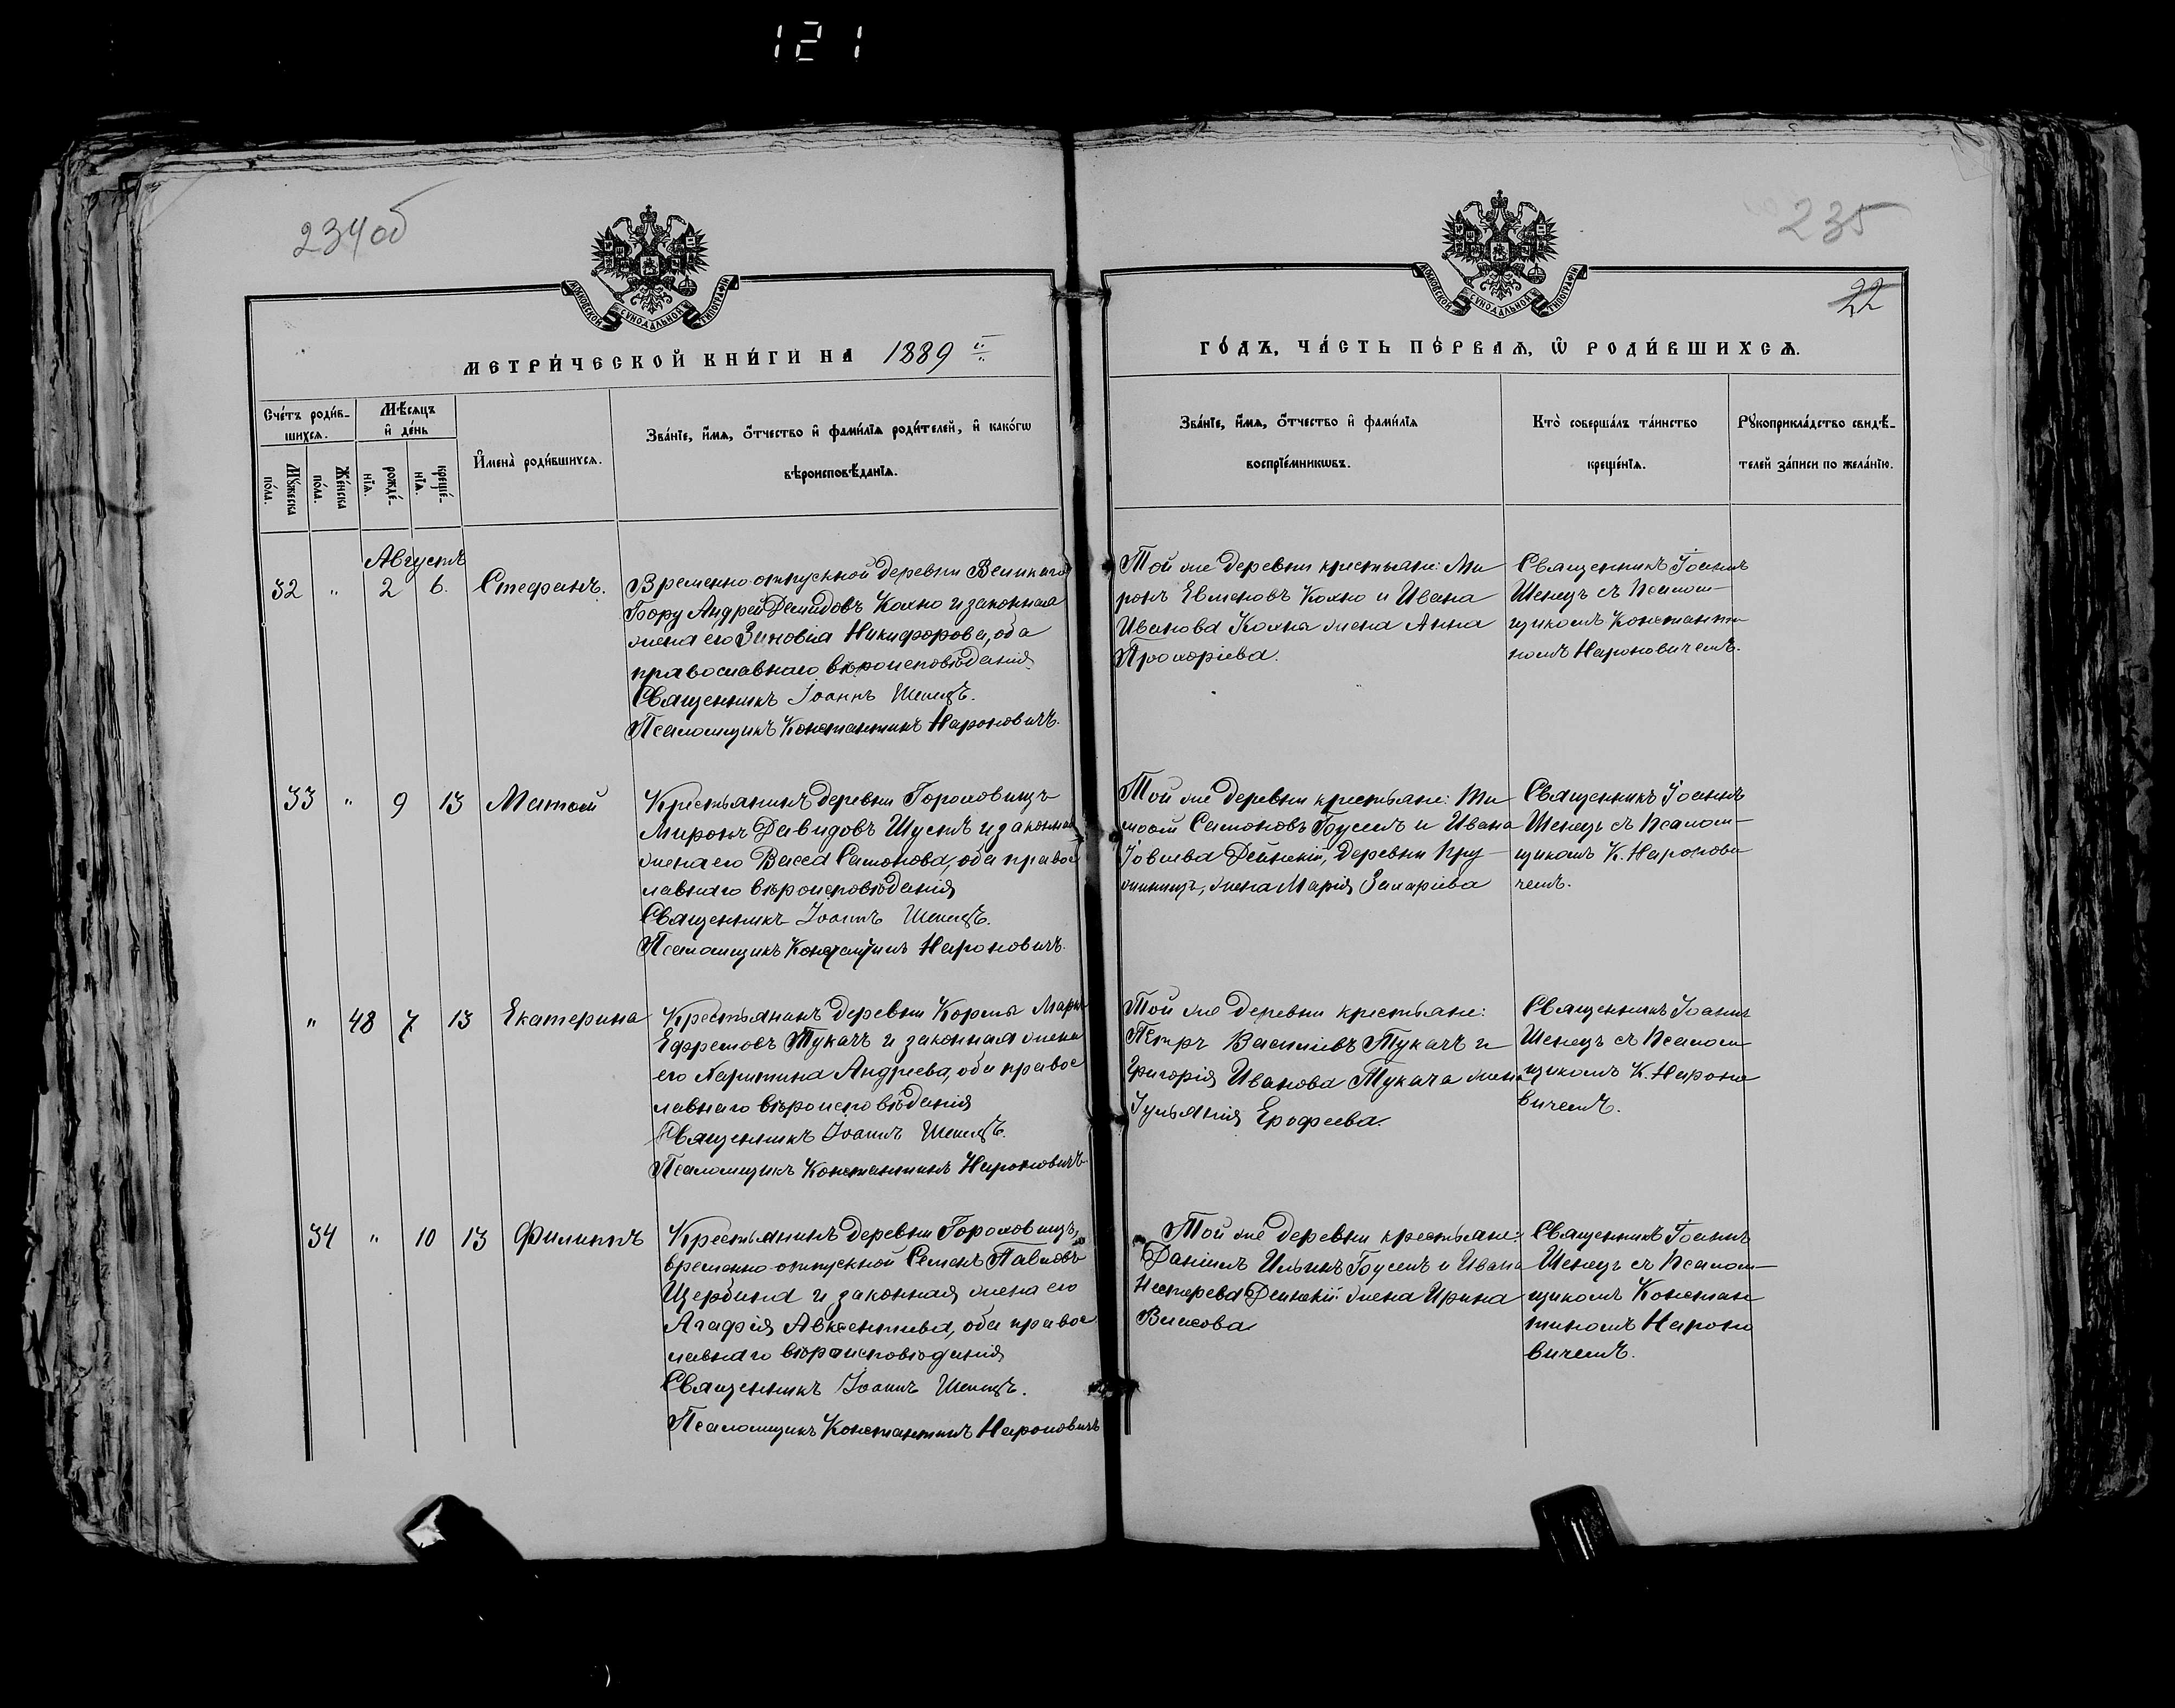 121
234об
235
22
МОСКОВСКОЙ СѴНОДАЛЬНОЙ ТИПОГРАФІИ
МОСКОВСКОЙ СѴНОДАЛЬНОЙ ТИПОГРАФІИ
МЕТРИ́ЧЕСКОЙ КНИ́ГИ НА 1889 й
ГО́ДЪ, ЧА́СТЬ ПЕ́РВАѦ, Ѡ҆ РОДИ́ВШИХСѦ.
Сче́тъ роди́в-
шихсѧ.
Мѣ́сѧцъ
и҆ де́нь
Мꙋ́жеска
по́ла.
Же́нска
по́ла.
рожде́-
нїѧ.
креще́-
нїѧ.
И҆мена̀ роди́вшихсѧ.
Зва́нїе, и҆́мѧ, ѻ҆́тчество и҆ фами́лїѧ роди́телей, и҆ како́гѡ
вѣроисповѣ́данїѧ.
Зва́нїе, и҆́мѧ, ѻ҆́тчество и҆ фами́лїѧ
воспрїе́мникѡвъ.
Кто̀ соверша́лъ та́инство
креще́нїѧ.
Рꙋкоприкла́дство свидѣ́-
телей за́писи по жела́нїю.
Августъ
32 " 2 6. Стефанъ.
Временно отпускной деревни Великаго
Бору Андрей Демидовъ Кохно и законная
жена его Зиновіа Никифорова, оба
православнаго вѣроисповѣданія
Священникъ Іоаннъ Шенецъ.
Псаломщикъ Константинъ Нароновичъ.
Той же деревни крестьяне: Ми
ронъ Евменовъ Кохно и Ивана
Иванова Кохна жена Анна
Прохоріева.
Священникъ Іоаннъ
Шенецъ съ псалом-
щикомъ Константи
номъ Нароновичемъ.
33 " 9 13 Матѳей
Крестьянинъ деревни Гороховищъ
Миронъ Давидовъ Шустъ и законная
жена его Васса Самонова, оба правос
лавнаго вѣроисповѣданія
Священникъ Іоаннъ Шенецъ.
Псаломщикъ Константинъ Нароновичъ.
Той же деревни крестьяне: Ти
моѳей Самоновъ и Ивана
Іовлева Дейнекій, деревни Пру
жинищъ, жена Марія Захаріева
Священникъ Іоаннъ
Шенецъ съ псалом-
щикомъ К. Наронови
чемъ.
" 48 7 13 Екатерина
Крестьянинъ деревни Кормы Марко
Ефремовъ Тукачъ и законная жена
его Харитина Андреева, оба правос
лавнаго вѣроисповѣданія
Священникъ Іоаннъ Шенецъ.
Псаломщикъ Константинъ Нароновичъ
Той же деревни крестьяне:
Петръ Васильевъ Тукачъ и
Григорія Иванова Тукача жена
Іульянія Ерофеева.
Священникъ Іоаннъ
Шенецъ съ псалом
щикомъ К. Нароно
вичемъ.
34 " 10 13 Филиппъ
Крестьянинъ деревни Гороховищъ,
временно-отпускной Семенъ Павловъ
Щербина и законная жена его
Агафія Авксентіева, оба правос
лавнаго вѣроисповѣданія
Священникъ Іоаннъ Шенецъ.
Псаломщикъ Константинъ Нароновичъ
Той же деревни крестьяне:
Даніилъ Ильинъ и Ивана
Нестерева Дейнекій жена Ирина
Власова
Священникъ Іоаннъ
Шенецъ съ псалом-
щикомъ Констан
тиномъ Нароно
вичемъ.